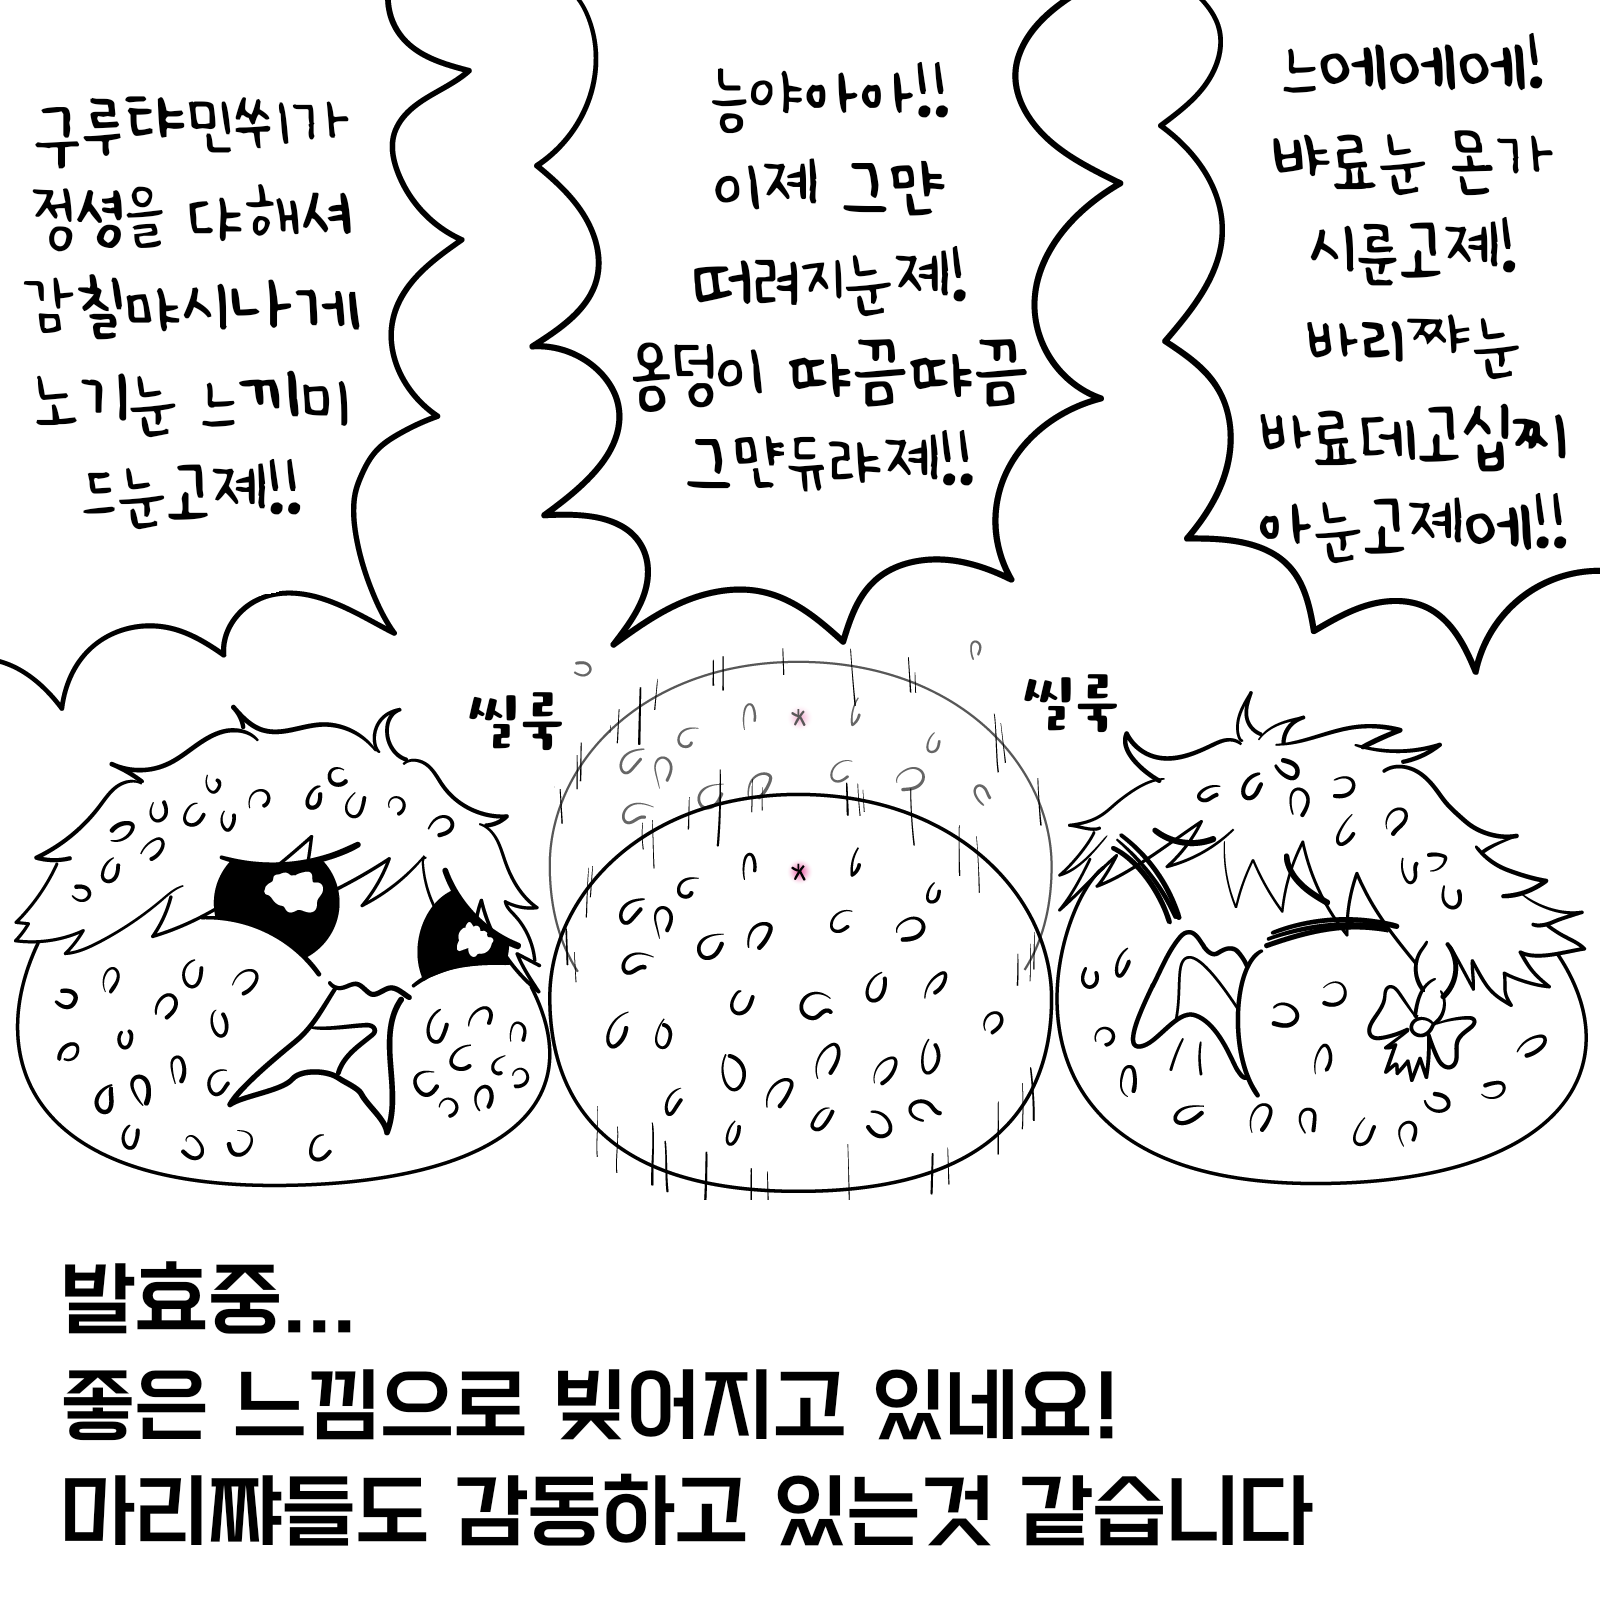 구루탸민쒸가
정셩을 댜해셔
감칠먀시나게
노기눈 느끼미
드눈고졔!!
능야아아!!
이졔 그먄
떠려지눈졔!
옹덩이 땨끔땨끔
그먄듀랴졔!!
느에에에!
뱌료눈 몬가
시룬고졔!
바리쨔눈
바료데고십찌
아눈고졔에!!
씰룩
씰룩
발효중...
좋은 느낌으로 빚어지고 있네요!
마리쨔들도 감동하고 있는것 같습니다